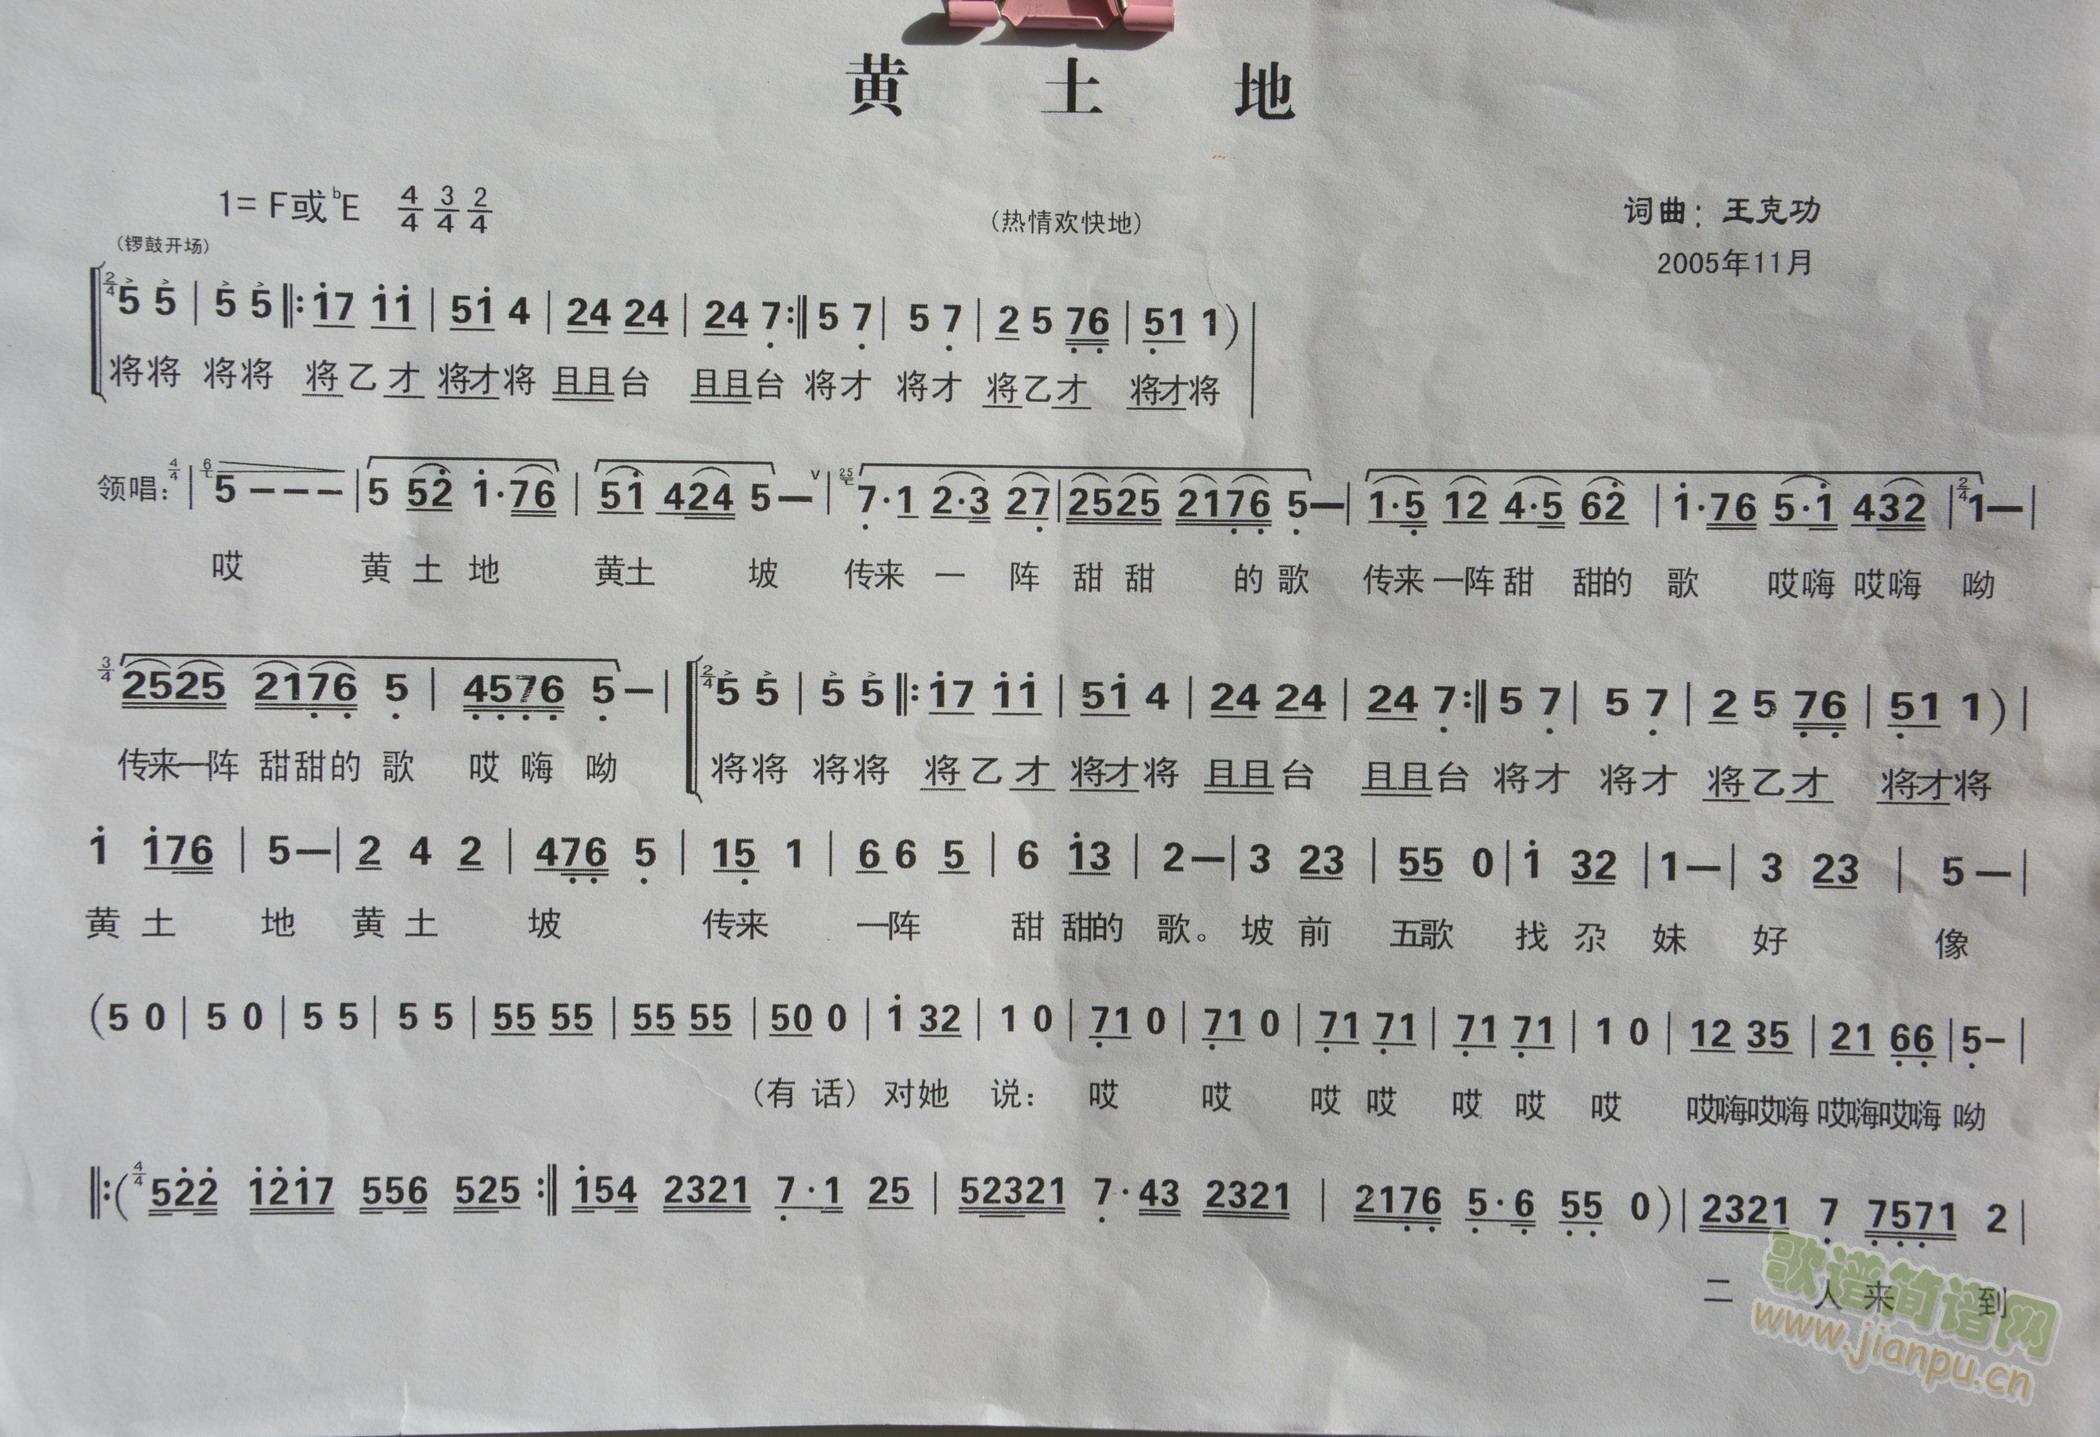 黄 土 地
1= F或bE 4/4 3/4 2/4 (热情欢快地) 词曲：王克功
(锣鼓开场) 2005年11月
2/4 5 5 | 5 5 ‖: i7 ii | 5i 4 | 24 24 | 24 7 :‖ 5 7 | 5 7 | 2 5 76 | 51 1 )
将将 将将 将乙才 将才将 且且台 且且台 将才 将才 将乙才 将才将
领唱: 4/4 | 5 - - - | 5 52 1·76 | 51 424 5 — | 7·1 2·3 27 | 2525 2176 5 — | 1·5 12 4·5 62 | 1·76 5·1 432 | 2/4 1 — |
哎 黄 土 地 黄土 坡 传来 一 阵 甜 甜 的 歌 传来一阵 甜 甜的 歌 哎嗨 哎嗨 呦
3/4 2525 2176 5 | 4576 5 — | 2/4 5 5 | 5 5 ‖: i7 ii | 5i 4 | 24 24 | 24 7 :‖ 5 7 | 5 7 | 2 5 76 | 51 1 ) |
传来一阵 甜甜的 歌 哎 嗨 呦 将将 将将 将乙才 将才将 且且台 且且台 将才 将才 将乙才 将才将
i i76 | 5 — | 2 4 2 | 476 5 | 15 1 | 6 6 5 | 6 i3 | 2 — | 3 23 | 55 0 | i 32 | 1 — | 3 23 | 5 — |
黄 土 地 黄 土 坡 传来 一阵 甜 甜的 歌。坡 前 五歌 找 尕 妹 好 像
(5 0 | 5 0 | 5 5 | 5 5 | 55 55 | 55 55 | 50 0 | i 32 | 1 0 | 71 0 | 71 0 | 71 71 | 71 71 | 1 0 | 12 35 | 21 66 | 5 - |
(有 话) 对她 说: 哎 哎 哎 哎 哎 哎 哎 哎嗨哎嗨 哎嗨哎嗨 呦
‖: ( 4/4 522 1217 556 525 :‖ 154 2321 7·1 25 | 52321 7·43 2321 | 2176 5·6 55 0 ) | 2321 7 7571 2 |
二 人来 到
歌谱简谱网
www.jianpu.cn